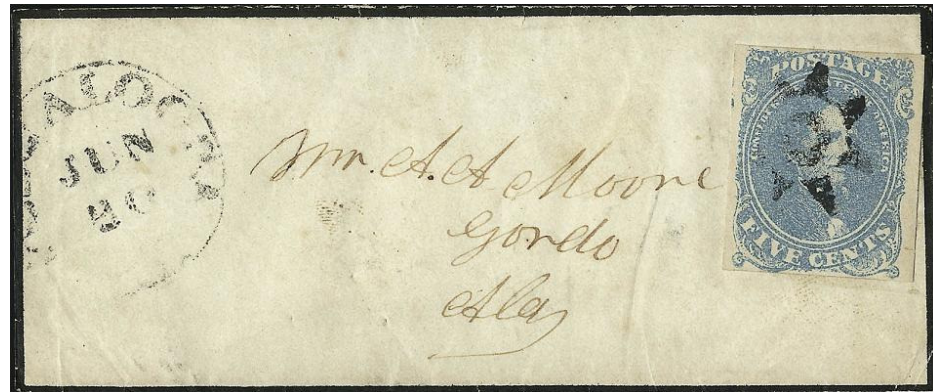 JUN
Mr. A. A. Moore
Gordo
Ala
POSTAGE
CONFEDERATE STATES OF AMERICA
FIVE CENTS